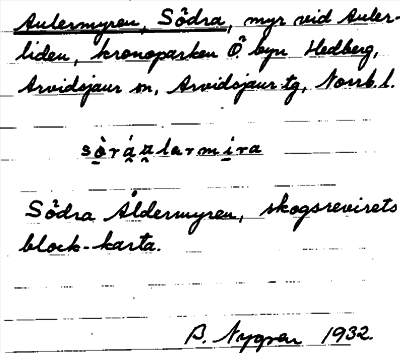 Aulermyren, Södra, myr vid Auler-
liden, kronoparken Ö. byn Hedberg,
Arvidsjaur sn, Arvidsjaur tg, Norrb. l.
Södra Åldermyren, skogsrevirets
block-karta.
B. Nygren 1932.